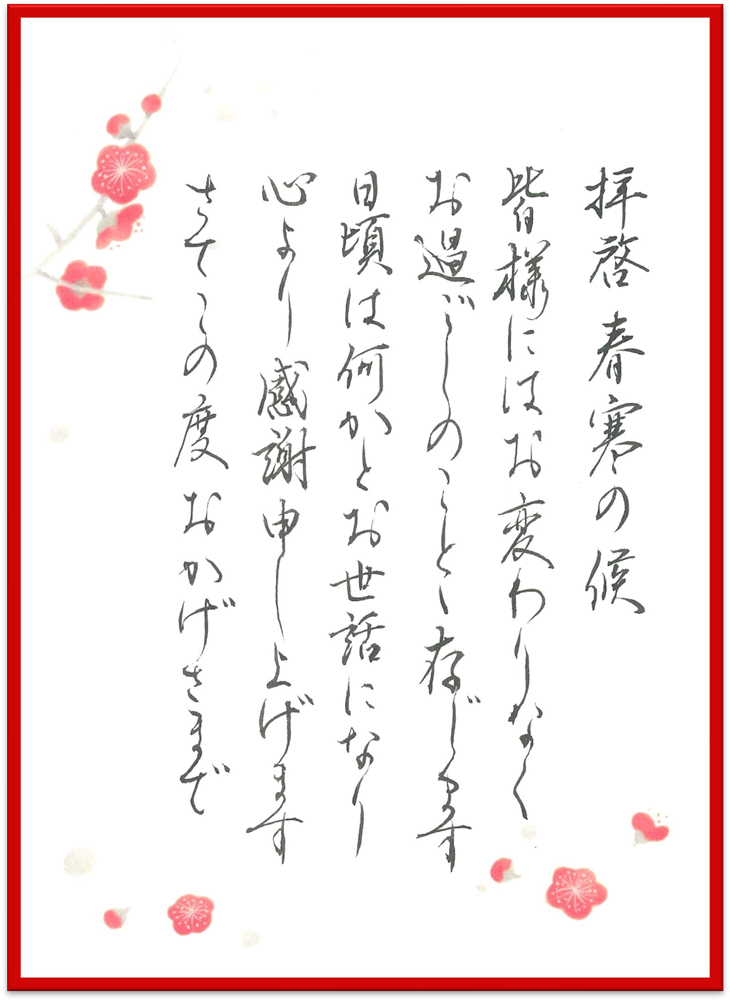 拝啓 春寒の候
皆様にはお変わりなく
お過ごしのことと存じます
日頃は何かとお世話になり
心より感謝申し上げます
さてこの度おかげさまで